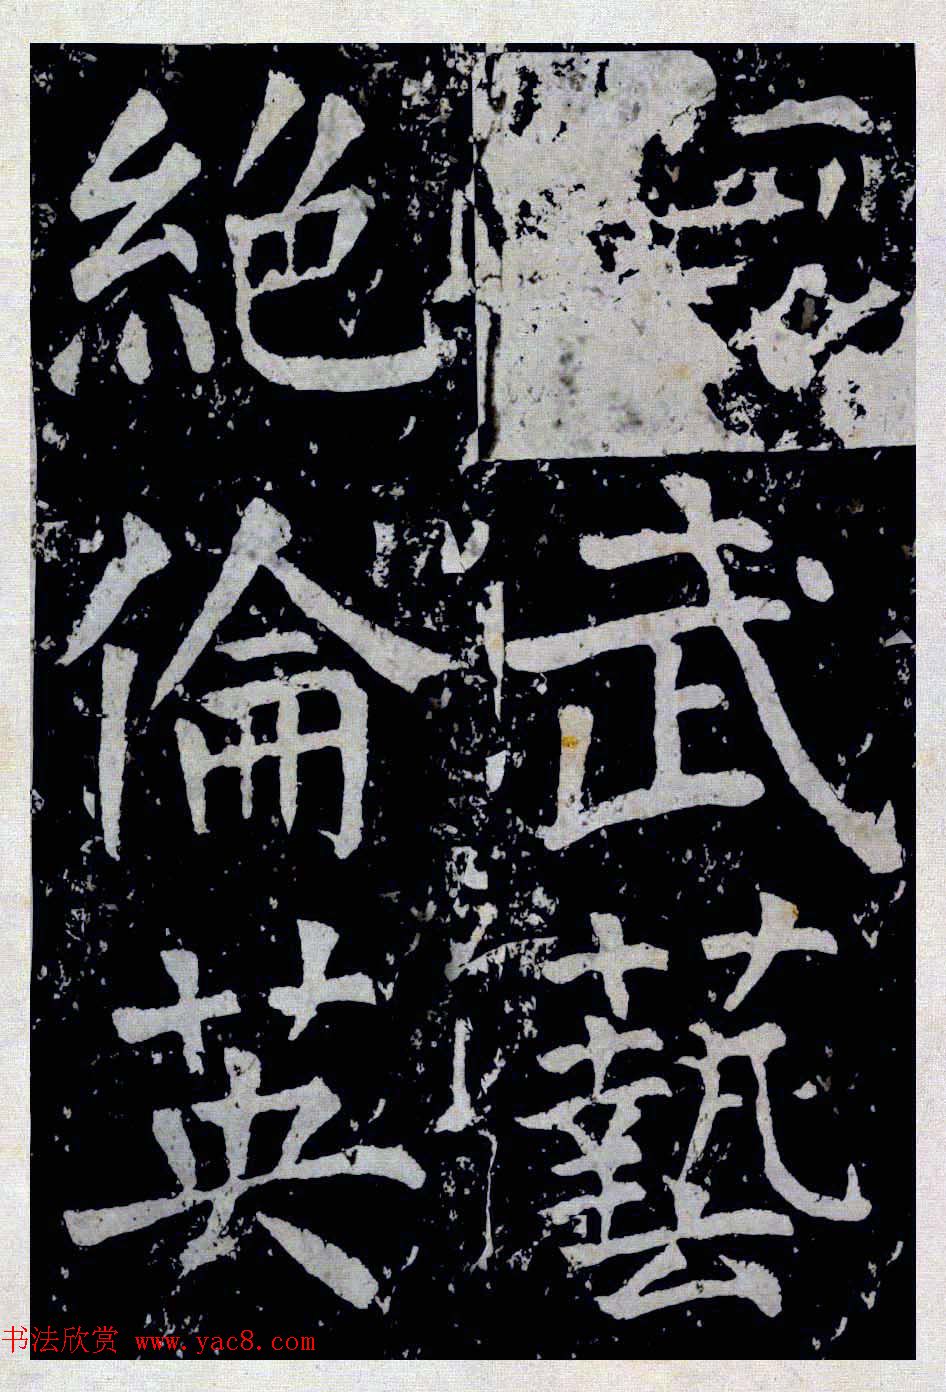 武藝
絕倫英
书法欣赏 www.yac8.com